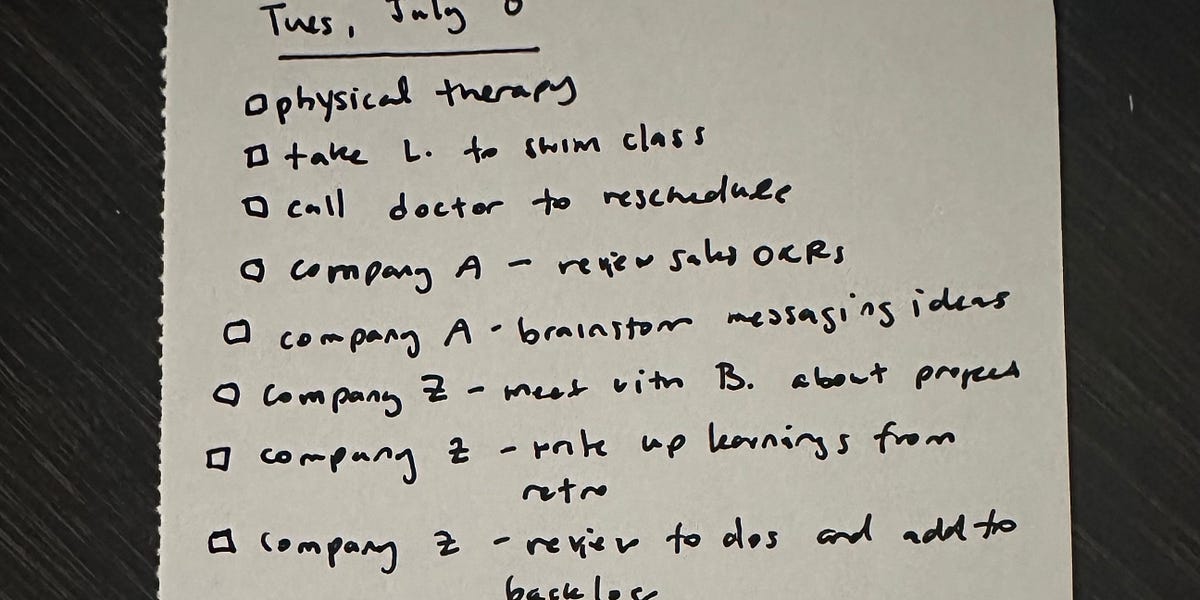 Tues, July 8
□ physical therapy
□ take L. to swim class
□ call doctor to reschedule
□ company A - review sales OKRs
□ company A - brainstorm messaging ideas
□ company Z - meet with B. about project
□ company Z - write up learnings from
retro
□ company Z - review to dos and add to
backlog